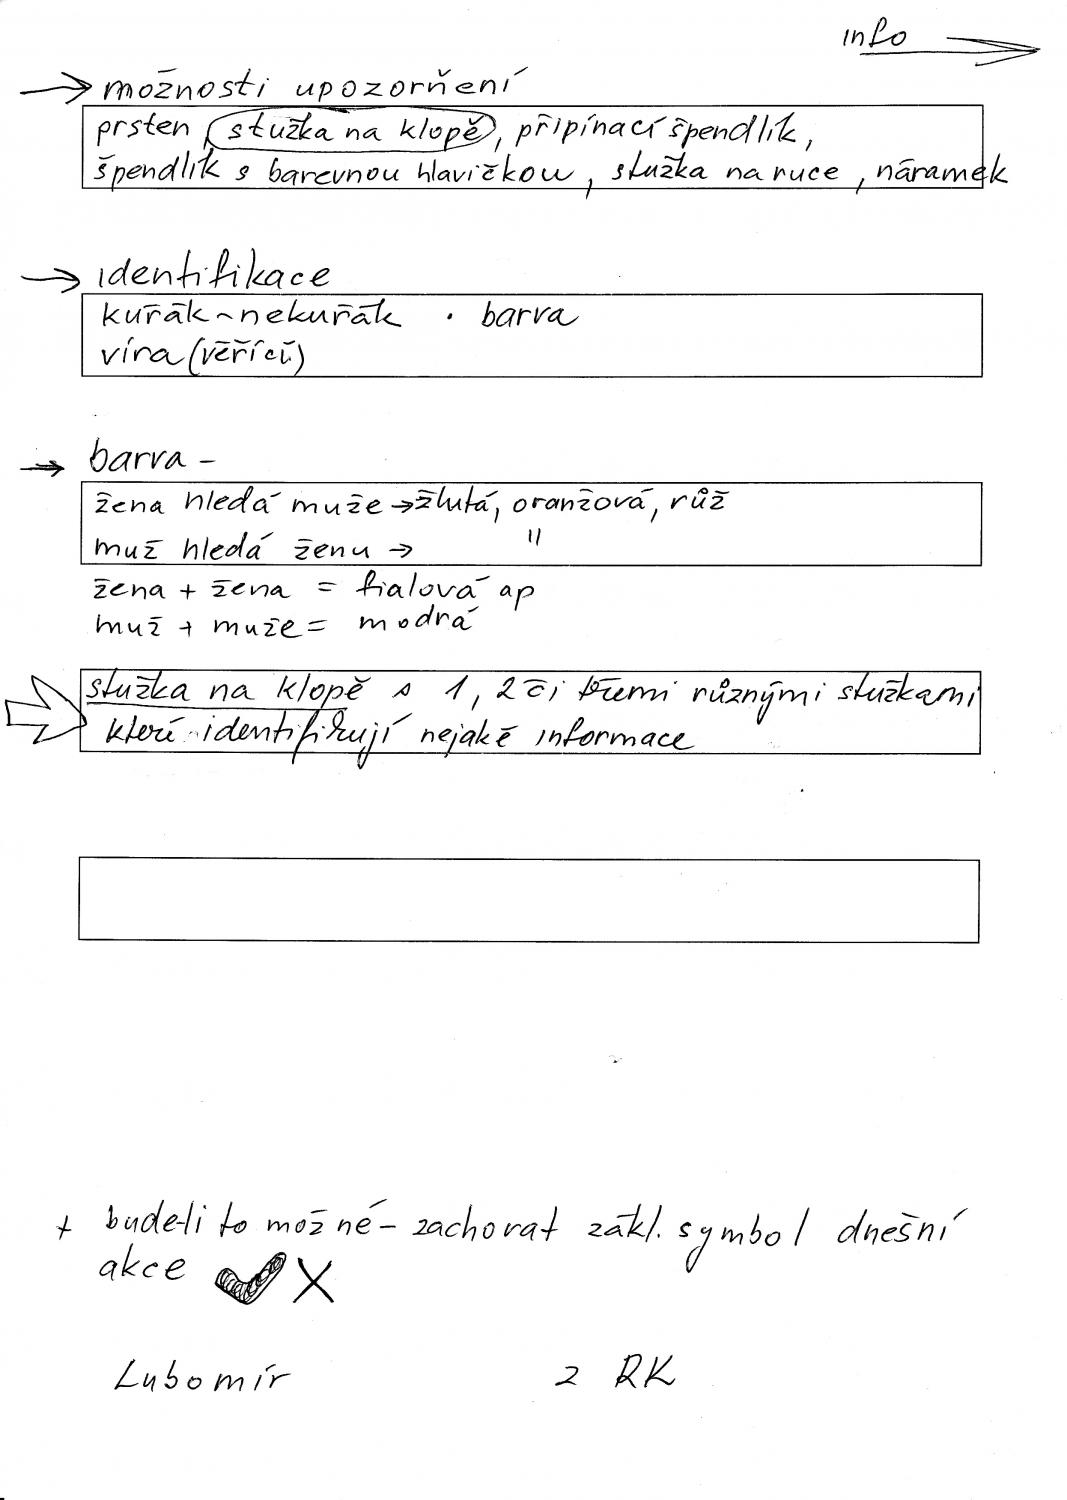 info
možnosti upozorňení
prsten, stužka na klopě, připínací špendlík,
špendlík s barevnou hlavičkou, stužka na ruce, náramek
identifikace
kuřák ~ nekuřák • barva
víra (věřící)
barva -
žena hledá muže → žlutá, oranžová, růž
muž hledá ženu → "
žena + žena = fialová ap
muž + muže = modrá
stužka na klopě s 1, 2 či třemi různými stužkami
kteří identifikují nejaké informace
+ bude-li to možné - zachovat zákl. symbol dnešní
akce ✔ X
Lubomír z RK